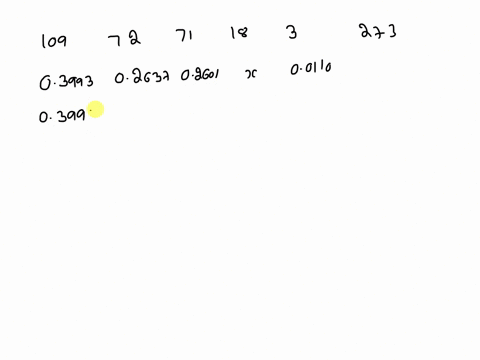 109 72 71 18 3 273
0.3993 0.2637 0.2601 x 0.0110
0.399